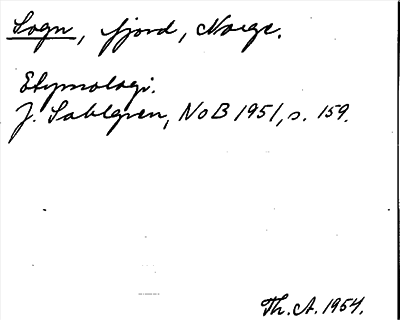 Sogn, fjord, Norge.
Etymologi.
J. Sahlgren, NoB 1951, s. 159.
Th. A. 1954.